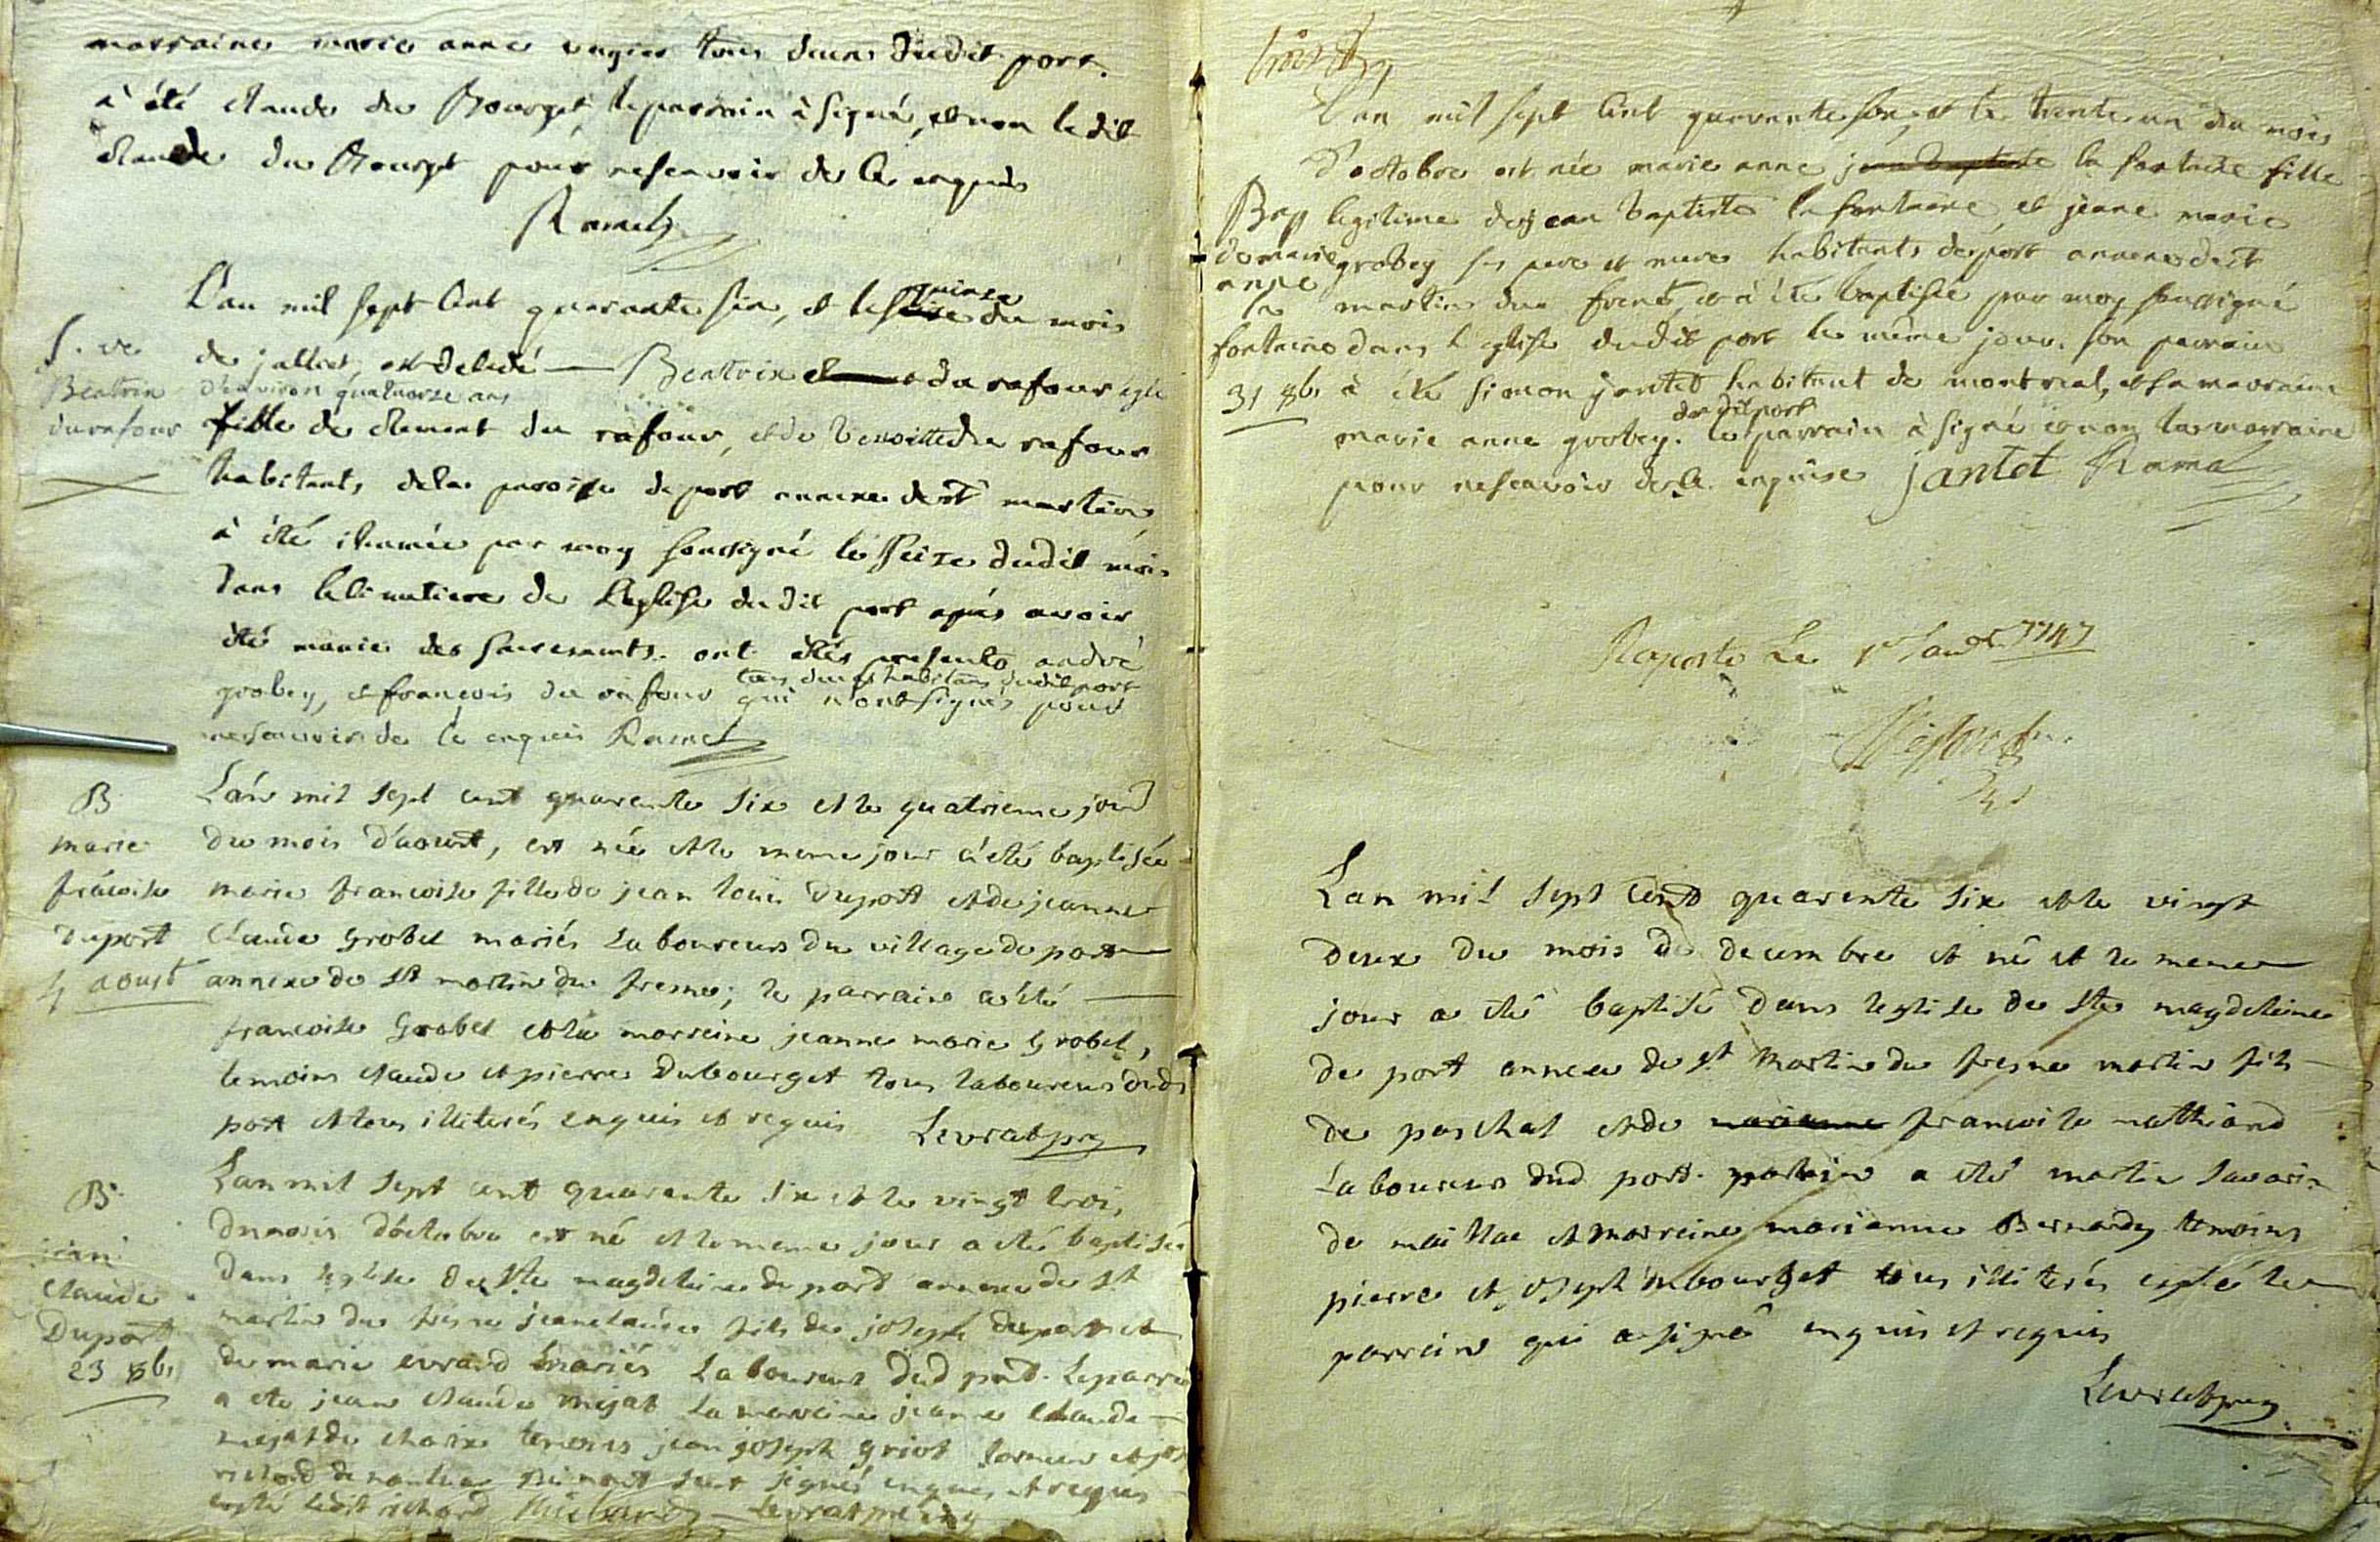 marraine marie anne vugier tous deux dudit port.
à été claude du Bourget, le parrain à signé, et non le dit
claude du Bourget pour nesçavoir de ce enquis
Ramel
L'an mil sept Cent quarante six, et le quinze du mois
de jullet, est decedé — Beatrix du rafour agée
d'environ quatuorze ans
fille de clement du rafour, et de benoitte du rafour
habitants, dela paroisse de port annexe de st martin
à été inhumée par moy soussigné le seize dudit mois
dans le cimetiere de L'eglise du dit port apres avoir
été munie des sacrements. ont étés presents andré
grobey, et françois du rafour tous deux habitans dudit port qui n'ont signés pour
nesçavoir de ce enquis Ramel
S. ve
Beatrix
du rafour
L'an mil sept cent quarente six et le quatrieme jour
du mois d'aoust, est née et le meme jour a été baptisée
marie francoise fille de jean louis Duport et de jeanne
Claude Grobel mariés Laboureurs du village de port
annexe de St martin du fresne; le parrain a été —
francoise Grobel et la marreine jeanne marie Grobel,
temoins claude et pierre Dubourget tous laboureurs dud
port et tous illiterés enquis et requis Levrat prê
B
marie
fräcoise
Duport
4 aoust
Lan mil sept cent quarente six et le vingt trois,
du mois d'octobre est né et le meme jour a été baptisé
dans leglise de Ste magdeleine de port annexe de St
martin du fresne jean claude fils de joseph duport et
de marie evrard mariés Laboureurs dud port. Le parrain
a ete jean claude mejat La marreine jeanne claude —
mejat de charix temoins jean joseph griot et
richord de nantua signés enquis et requis
excepté ledit richord Richard Levrat prê
B
jean
Claude
Duport
23 8bre
L'an mil sept Cent quarente six, et le trente un du mois
d'octobre est née marie anne jean baptiste la fontaine fille
legitime de jean baptiste la fontaine et jeane marie
grobey ses pere et mere habitants de port annexe de st
martin du frene, et à été baptisée par moy soussigné
dans L'eglise dudit port le même jour. son parrain
à été simon jantet habitant de montreal, et sa marraine
marie anne grobey. du dit port le parrain à signé et non la marraine
pour nesçavoir de ce enquise jantet Ramel
Bap
de marie
anne
la
fontaine
31 8bre
Raporté Le 1747
Lan mil sept Cent quarente six et le vingt
deux du mois de decembre et né et le meme
jour a eté baptisé dans leglise de Ste magdeleine
de port annexe de St Martin du fresne martin fils —
de paschal et de marianne francoise mathiand
Laboureurs dud port. parrein a eté martin Savarin
de maillac et marreine marianne Bernardy temoins
pierre et joseph Dubourget tous illiterés excepté le
parrein qui a signé enquis et requis
Levrat prê